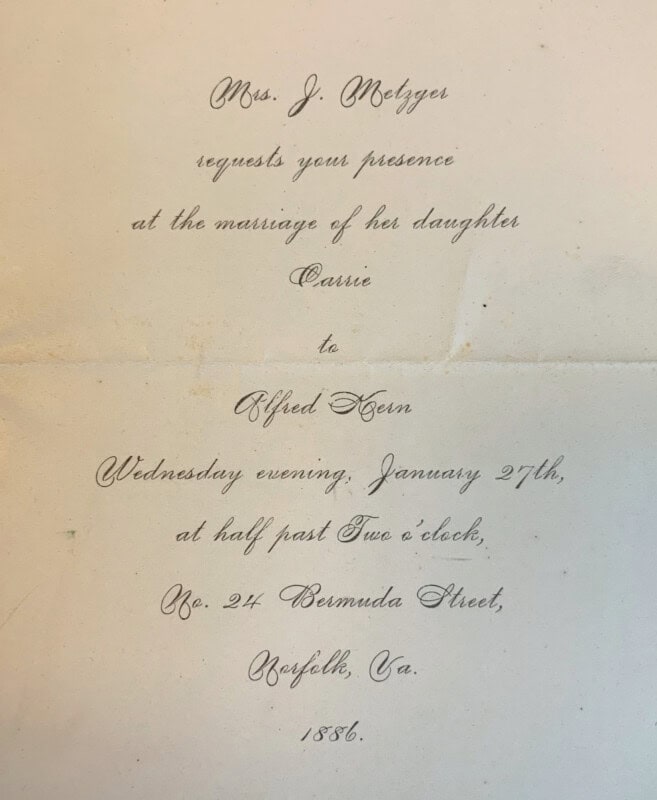 Mrs. J. Metzger
requests your presence
at the marriage of her daughter
Carrie
to
Alfred Kern
Wednesday evening, January 27th,
at half past Two o'clock,
No. 24 Bermuda Street,
Norfolk, Va.
1886.